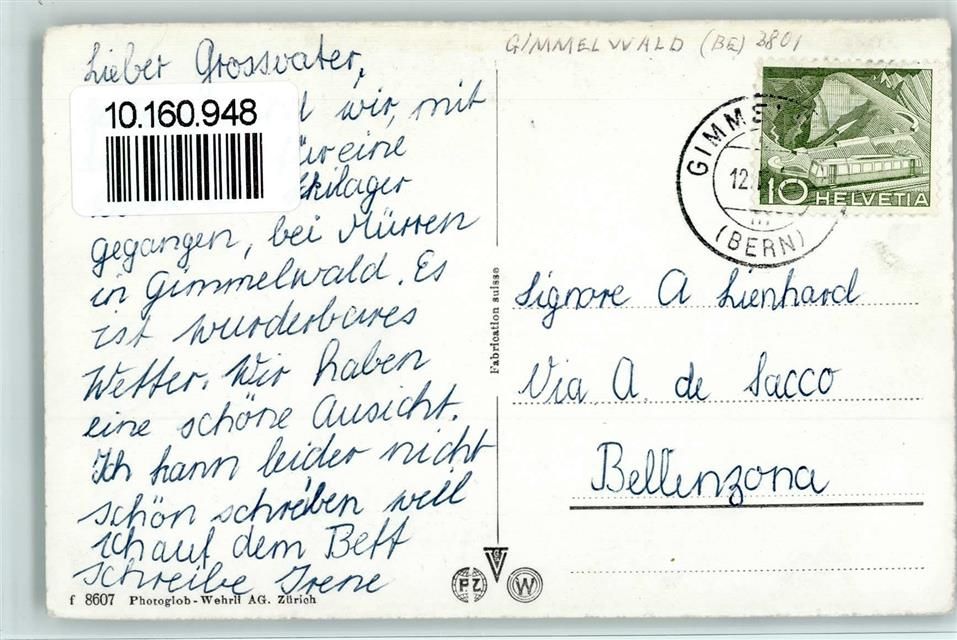 Lieber Grossvater,
10.160.948
wir, mit
eine
Skilager
gegangen, bei Mürren
in Gimmelwald. Es
ist wunderbares
Wetter. Wir haben
eine schöne Ausicht.
Ich kann leider nicht
schön schreiben weil
ich auf dem Bett
schreibe Irene
f 8607 Photoglob-Wehrli AG. Zürich
Fabrication suisse
PZ
W
GIMMELWALD (BE) 3801
GIMM
12.
(BERN)
10 HELVETIA
Signore A Lienhard
Via A. de Sacco
Bellinzona